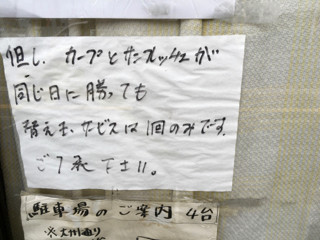 但し、カープとサンフレッチェが
同じ日に勝っても
替え玉サービスは1回のみです。
ご了承下さい。
駐車場のご案内 4台
※大州通り